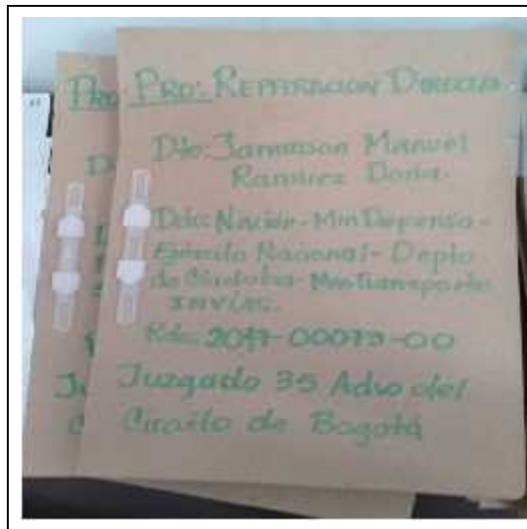 PRO: REPARACION DIRECTA
Dte: Jaminson Manuel
Ramirez Doria.
Ddo: Nación - Min Defensa -
Ejército Nacional - Depto
de Córdoba - Min Transporte
INVIAS.
Rdo: 2017-00079-00
Juzgado 35 Advo del
Circuito de Bogotá